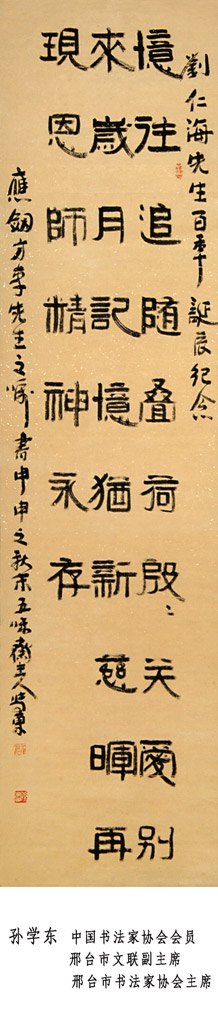 劉仁海先生百年誕辰紀念
憶往追随叠荷殷〻关爱别
來歲月記憶猶新慈暉再
現恩師精神永存
應劔方李先生之嘱書申申之秋
孙学东 中国书法家协会会员
邢台市文联副主席
邢台市书法家协会主席